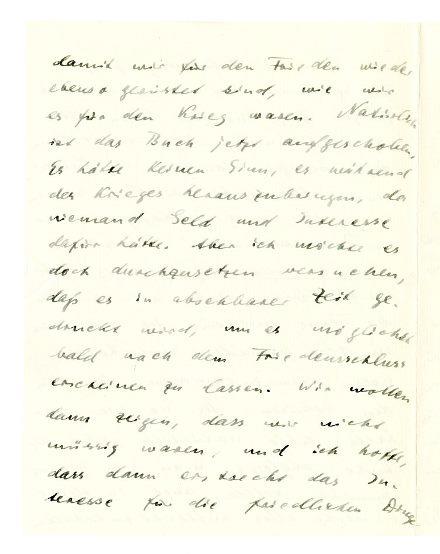 damit wir für den Frieden wieder
ebenso gerüstet sind, wie wir
es für den Krieg waren. Natürlich
ist das Buch jetzt aufgeschoben.
Es hätte keinen Sinn, es während
des Krieges herauszubringen, da
niemand Geld und Interesse
dafür hätte. Aber ich möchte es
doch durchzusetzen versuchen,
daß es in absehbarer Zeit ge-
druckt wird, um es möglichst
bald nach dem Friedensschluss
erscheinen zu lassen. Wir wollen
dann zeigen, dass wir nicht
müssig waren, und ich hoffe,
dass dann erst recht das In-
teresse für die friedlichen Dinge